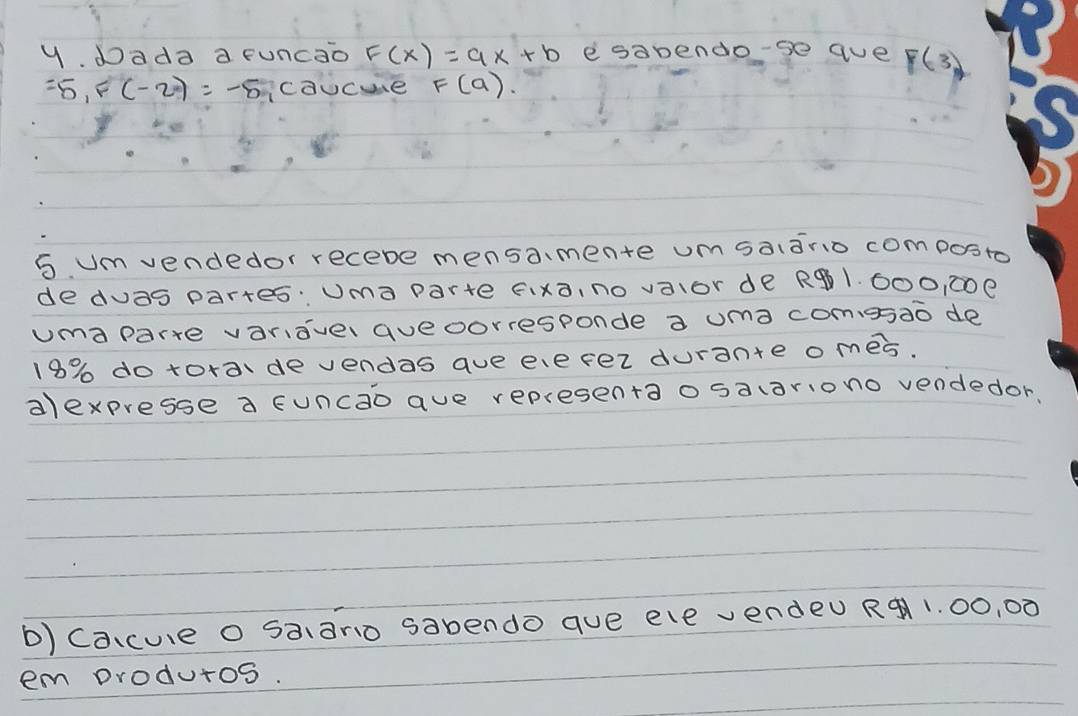 4. Dada a função F(x) = ax + b e sabendo-se que F(3)
=5, F(-2) = -5, caucule F(a).
5. Um vendedor recebe mensalmente um salário composto
de duas partes: Uma parte fixa, no valor de R$ 1.000,00 e
uma parte variável que corresponde a uma comissão de
18% do total de vendas que ele fez durante o mês.
a) expresse a função que representa o salario no vendedor.
b) Calcule o salário sabendo que ele vendeu R$ 1.00,00
em produtos.
R
S